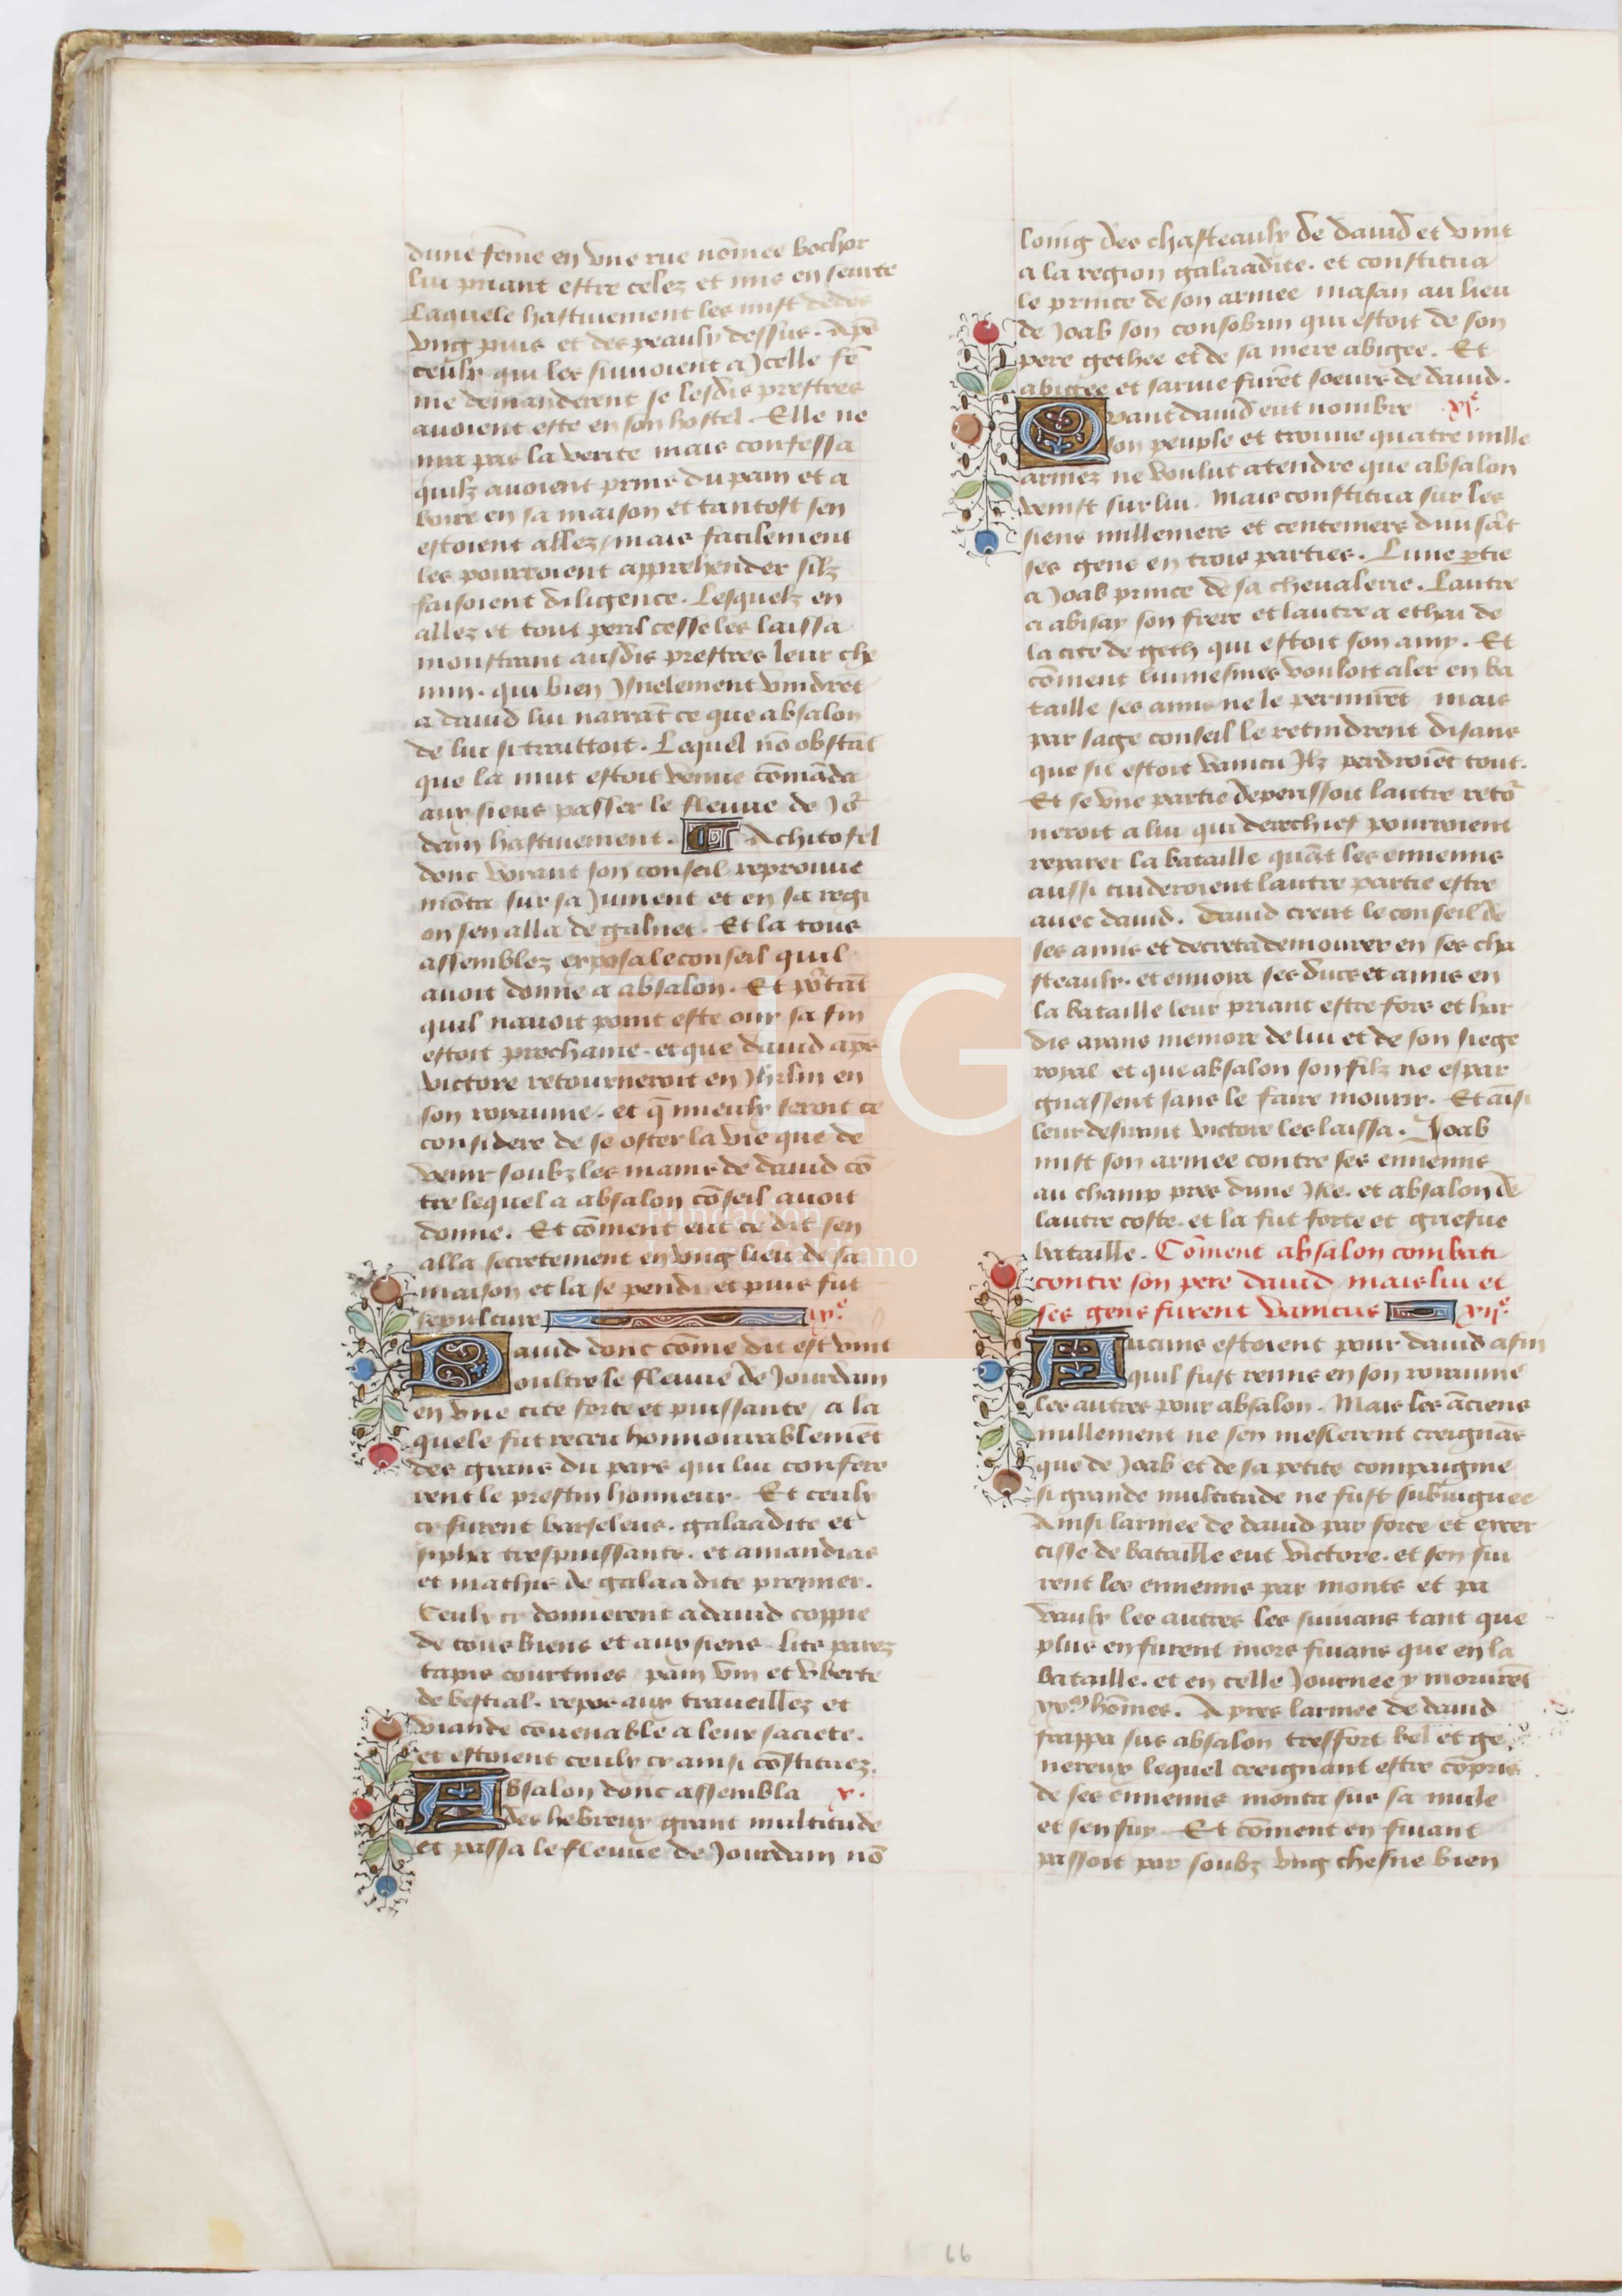 dune fēme en vne rue nōmee bochor
lui priant estre celez et mis en seurte
Laquele hastiuement les mist dedēs
vng puis et des peaulx dessus. Apēs
ceulx qui les suiuoient a Jcelle fē
me demanderent se lesdis prestres
auoient este en son hostel. Elle ne
nia pas la verite mais confessa
quilz auoient prins du pain et a
boire en sa maison et tantost sen
estoient allez / mais facilement
les pourroient apprehender silz
faisoient diligence. Lesquelz en
allez et tout peril cesse les laissa
monstrant ausdis prestres leur che
min. qui bien Jsnelement vindrēt
a dauid lui narrāt ce que absalon
de lui si traittoit. Lequel nō obstāt
que la nuit estoit venue cōmāda
aux siens passer le fleuue de Jor̄
dain hastiuement. C Achitofel
donc voiant son conseil reprouue
mōta sur sa Jument et en sa regi
on sen alla de galnes. Et la tous
assemblez exposa le conseil quil
auoit donne a absalon. Et por̄tāt
quil nauoit point este ouy sa fin
estoit prochaine. et que dauid apēs
victore retourneroit en Jhrlm en
son royaume. et q̄ mieulx seroit ce
considere de se oster la vie que de
venir soubz les mains de dauid cō
tre lequel a absalon cōseil auoit
donne. Et cōment eut ce dit sen
alla secretement en vng lieu de sa
maison et la se pendi et puis fut
sepulture ixᵉ.
Dauid donc cōme dit est vint
oultre le fleuue de Jourdain
en vne cite forte et puissante / a la
quele fut receu honnourablemēt
des grans du pays qui lui confere
rent le prestin honneur. Et ceulx
cy furent barseleus. galaadite et
sipha trespuissante. et amandias
et mathis de galaadite premier.
Ceulx cy donnerent a dauid coppie
de tous biens et aux siens. lits parez
tapis courtines / pain vin et vberte
de bestial. repos aux traueillez et
viande cōuenable a leur saciete.
et estoient ceulx cy ainsi cōstituez.
Absalon donc assembla x.
des hebreux grant multitude
et passa le fleuue de Jourdain nō
loing des chasteaulx de dauid et vint
a la region galaadite. et constitua
le prince de son armee masan au lieu
de Joab son consobrin qui estoit de son
pere gethee et de sa mere abigee. Et
abigee et saruie furēt soeurs de dauid.
Quant dauid eut nombre xjᵉ.
son peuple et trouue quatre mille
armez ne voulut atendre que absalon
venist sur lui. Mais constitua sur les
siens milleniers et centeniers diuisāt
ses gens en trois parties. Lune p̄tie
a Joab prince de sa cheualerie. Lautre
a abisay son frere et lautre a ethai de
la cite de geth qui estoit son amy. Et
cōment luimesmes vouloit aler en ba
taille ses amis ne le permirēt / mais
par sage conseil le retindrent disans
que sil estoit vaincu Jlz perdroiēt tout.
Et se vne partie deperissoit lautre retor̄
neroit a lui qui derechief pourroient
reparer la bataille quāt les ennemis
aussi cuideroient lautre partie estre
auec dauid. Dauid creut le conseil de
ses amis et decreta demourer en ses cha
steaulx. et enuoia ses ducs et amis en
la bataille leur priant estre fors et har
dis ayans memore de lui et de son siege
royal et que absalon son filz ne espar
gnassent sans le faire mourir. Et aīsi
leur desirant victore les laissa. Joab
mist son armee contre ses ennemis
au champ pres dune Jsle. et absalon de
lautre coste. et la fut forte et griefue
bataille. Cōment absalon combati
contre son pere dauid / mais lui et
ses gens furent vaincus xijᵉ.
Aucuns estoient pour dauid afin
quil fust remis en son royaume
les autres pour absalon. Mais les āciens
nullement ne sen meslerent creignās
que de Joab et de sa petite compaignie
si grande multitude ne fust subiuguee
Ainsi larmee de dauid par force et exer
cisse de bataille eut victore. et sen fui
rent les ennemis par monts et pa
vaulx les autres les suiuans tant que
plus en furent mors fuians que en la
bataille. et en celle Journee y morurēt
hōmes. Apres larmee de dauid
frappa sus absalon tresfort bel et ge
nereux lequel creignant estre cōpris
de ses ennemis monta sus sa mule
et sen fuy. Et cōment en fuiant
passoit par soubz vng chesne bien
66
Fundación
Lázaro Galdiano